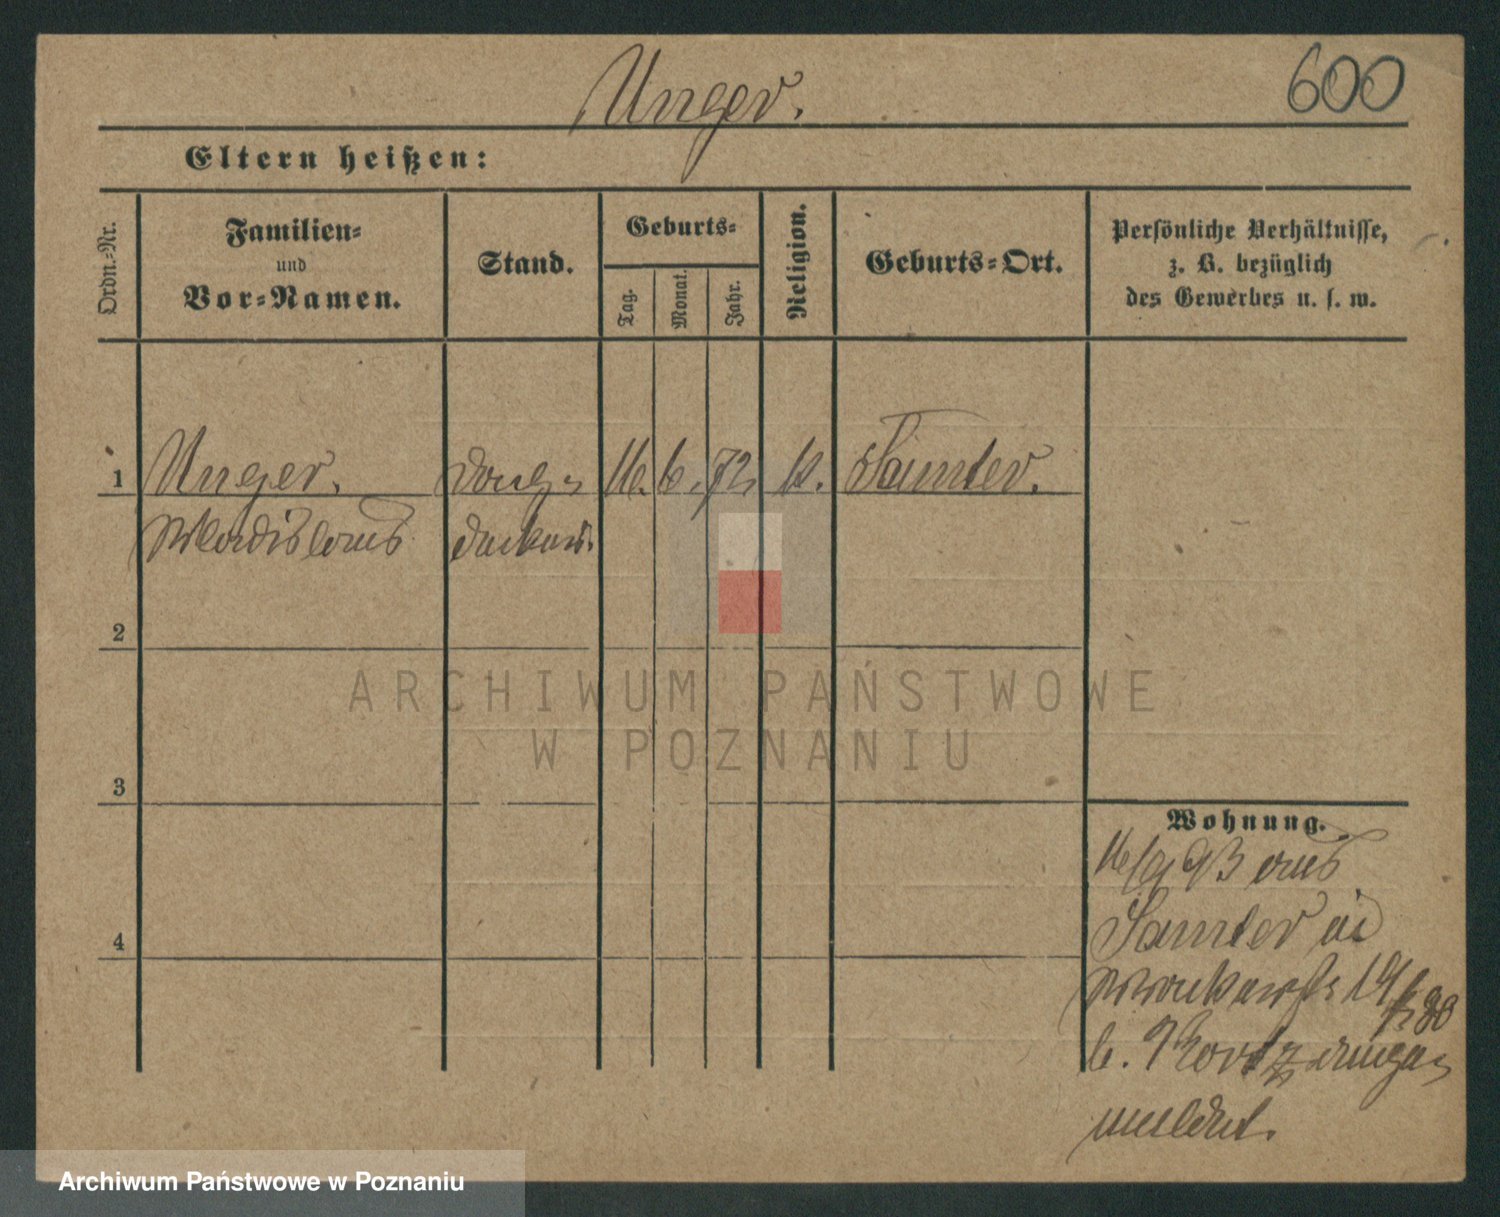 Unger.
600
Eltern heißen:
Ordn.-Nr.
Familien-
und
Vor-Namen.
Stand.
Geburts-
Tag.
Monat.
Jahr.
Religion.
Geburts-Ort.
Persönliche Verhältnisse,
z. B. bezüglich
des Gewerbes u. s. w.
1
Unger.
Wladislaus
16. 6. 72.
k.
Samter.
2
3
4
Wohnung.
16/9 93 aus
Samter in
19/
b. ange-
meldet.
ARCHIWUM PAŃSTWOWE
W POZNANIU
Archiwum Państwowe w Poznaniu